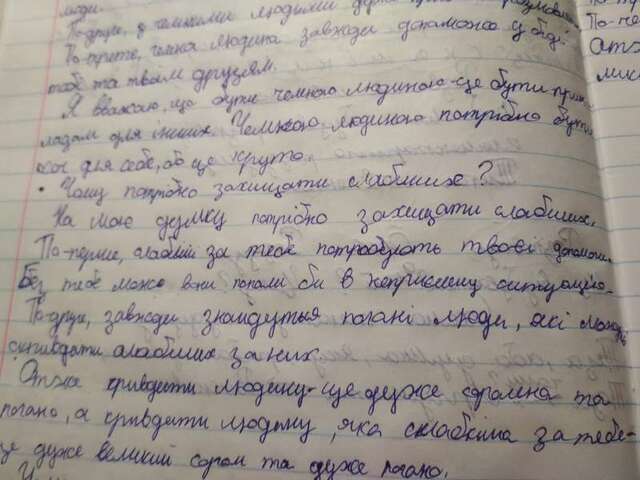 люди.
По-друге, з чемними людьми дуже
По-третє, чемна людина завжди допоможе у біді
тобі та твоїм друзям.
Я вважаю, що бути чемною людиною - це бути прик-
ладом для інших. Чемною людиною потрібно бути
хоч для себе, бо це круто.
• Чому потрібно захищати слабших?
На мою думку потрібно захищати слабших.
По-перше, слабші за тебе потребують твоєї допомоги.
Без тебе може вони попали би в неприємну ситуацію.
По-друге, завжди знайдуться погані люди, які можуть
скривдити слабших за них.
Отже кривдити людину - це дуже соромно та
погано, а кривдити людину, яка слабкіша за тебе -
це дуже великий сором та дуже погано.
По-
Отже